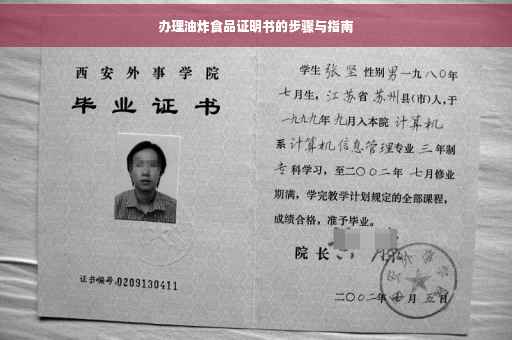 办理油炸食品证明书的步骤与指南
西安外事学院
毕业证书
证书编号:0209130411
学生 张坚 性别 男 一九八〇年
七月生, 江苏省 苏州县(市)人, 于
一九九九年 九月入本院 计算机
系 计算机信息管理专业 三 年制
专科学习, 至二〇〇二年 七月修业
期满, 学完教学计划规定的全部课程,
成绩合格, 准予毕业。
院长
二〇〇二年 七月 五日